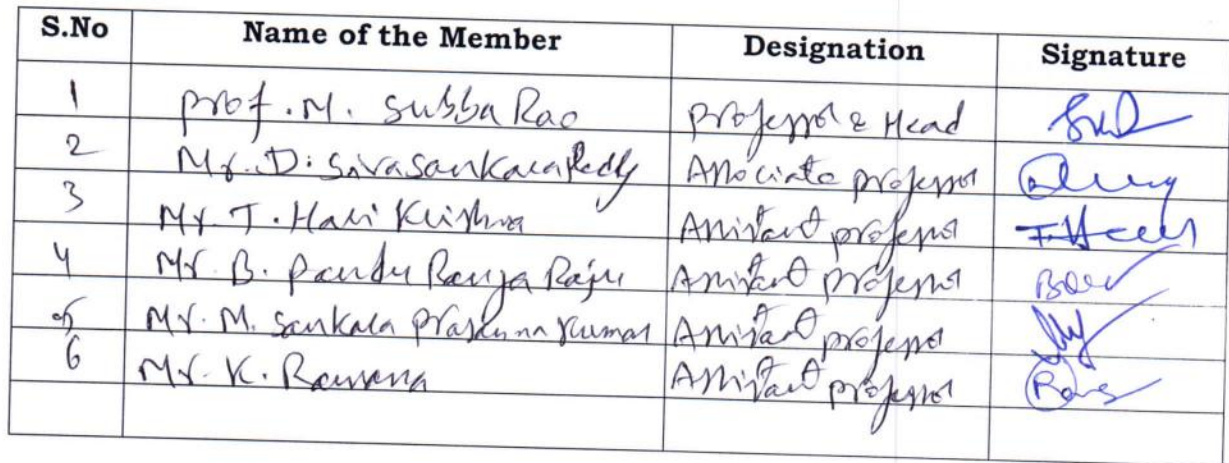 S.No Name of the Member Designation Signature
1 Prof. M. Subba Rao Professor & Head
2 Mr. D. Sivasankara Reddy Associate professor
3 Mr. T. Hari Krishna Assistant professor
4 Mr. B. Pandu Ranga Raju Assistant professor
5 Mr. M. Sankara Prasanna Kumar Assistant professor
6 Mr. K. Ramana Assistant professor